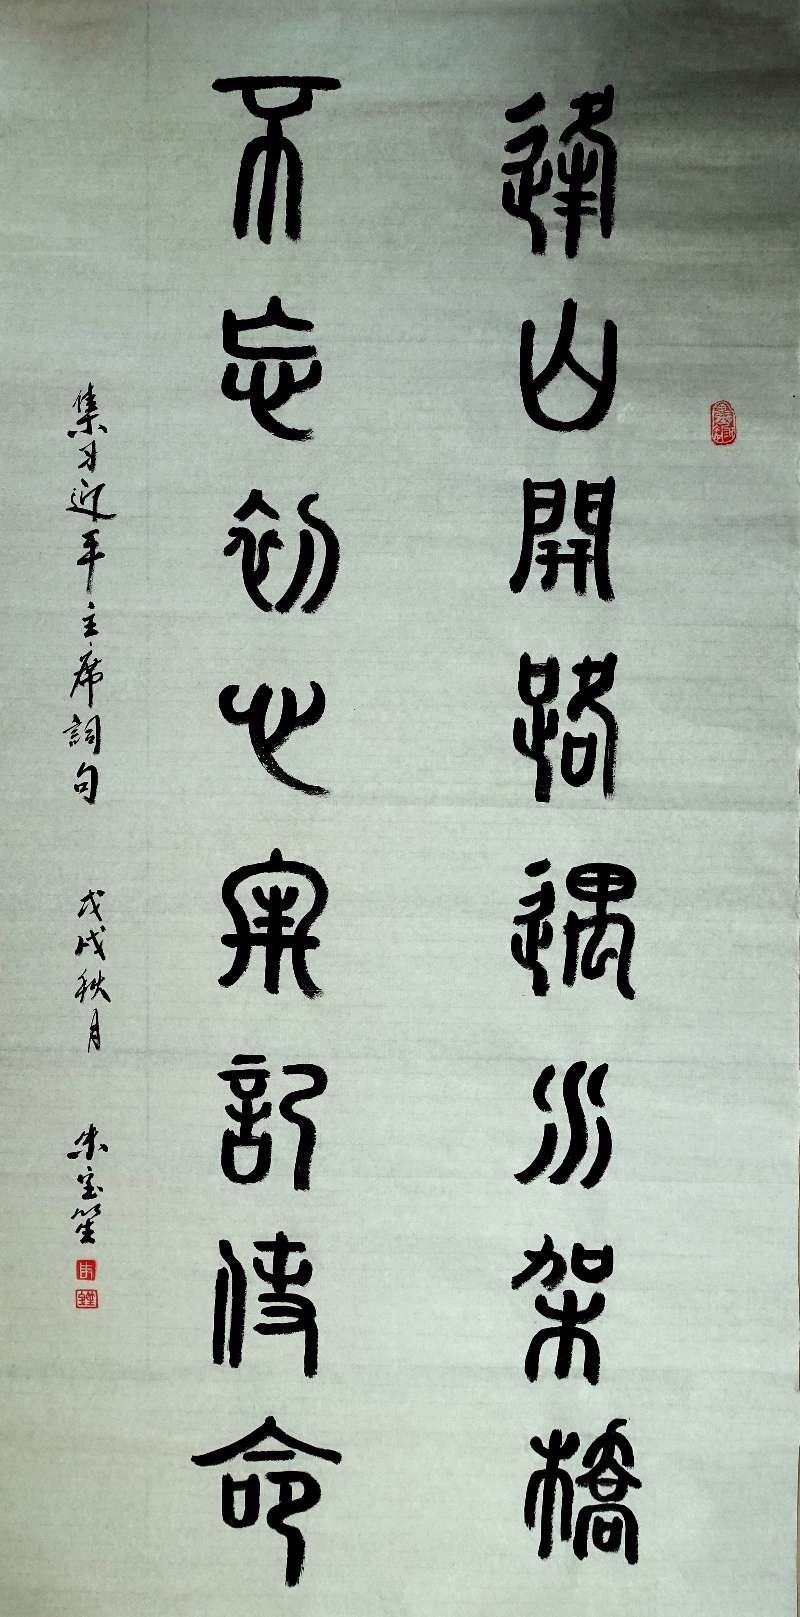 逢山開路遇水架橋
不忘初心牢記使命
集习近平主席詞句 戊戌秋月 朱宝笙